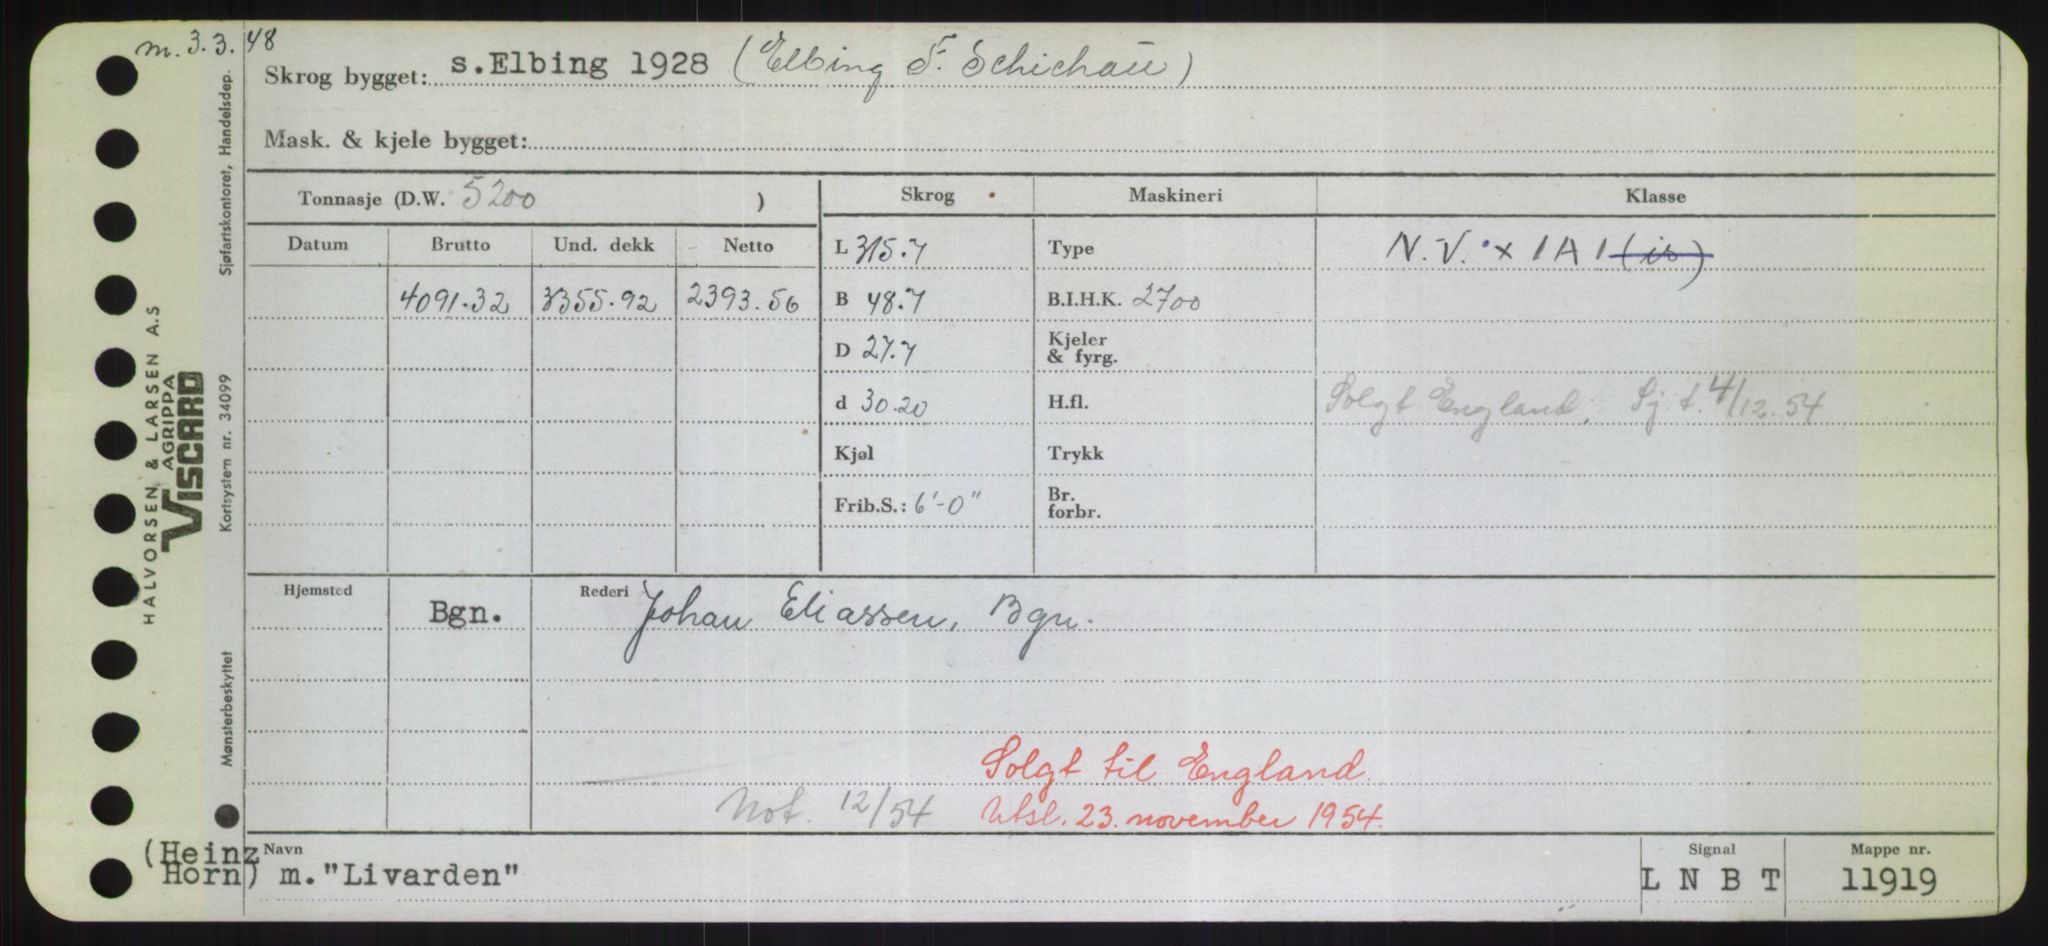 m. 3.3.48
Skrog bygget: s.Elbing 1928 (Elbing F. Schichau)
Mask. & kjele bygget:
Tonnasje (D.W. 5200 )
Skrog Maskineri Klasse
Datum Brutto Und. dekk Netto
4091.32 3355.92 2393.56
L 315.7 Type N.V. x 1A1 (is)
B 48.7 B.I.H.K. 2700
D 27.7 Kjeler & fyrg.
d 30.20 H.fl. Solgt England, Sj.t. 4/12.54
Kjøl Trykk
Frib.S.: 6'-0" Br. forbr.
Hjemsted Bgn. Rederi Johan Eliassen, Bgn.
Solgt til England.
Not. 12/54 Utsl. 23. november 1954.
(Heinz Horn) Navn m."Livarden"
Signal L N B T
Mappe nr. 11919
HALVORSEN & LARSEN A.S
AGRIPPA
VISCARD
Mønsterbeskyttet Kortsystem nr. 34099 Sjøfartskontoret, Handelsdep.